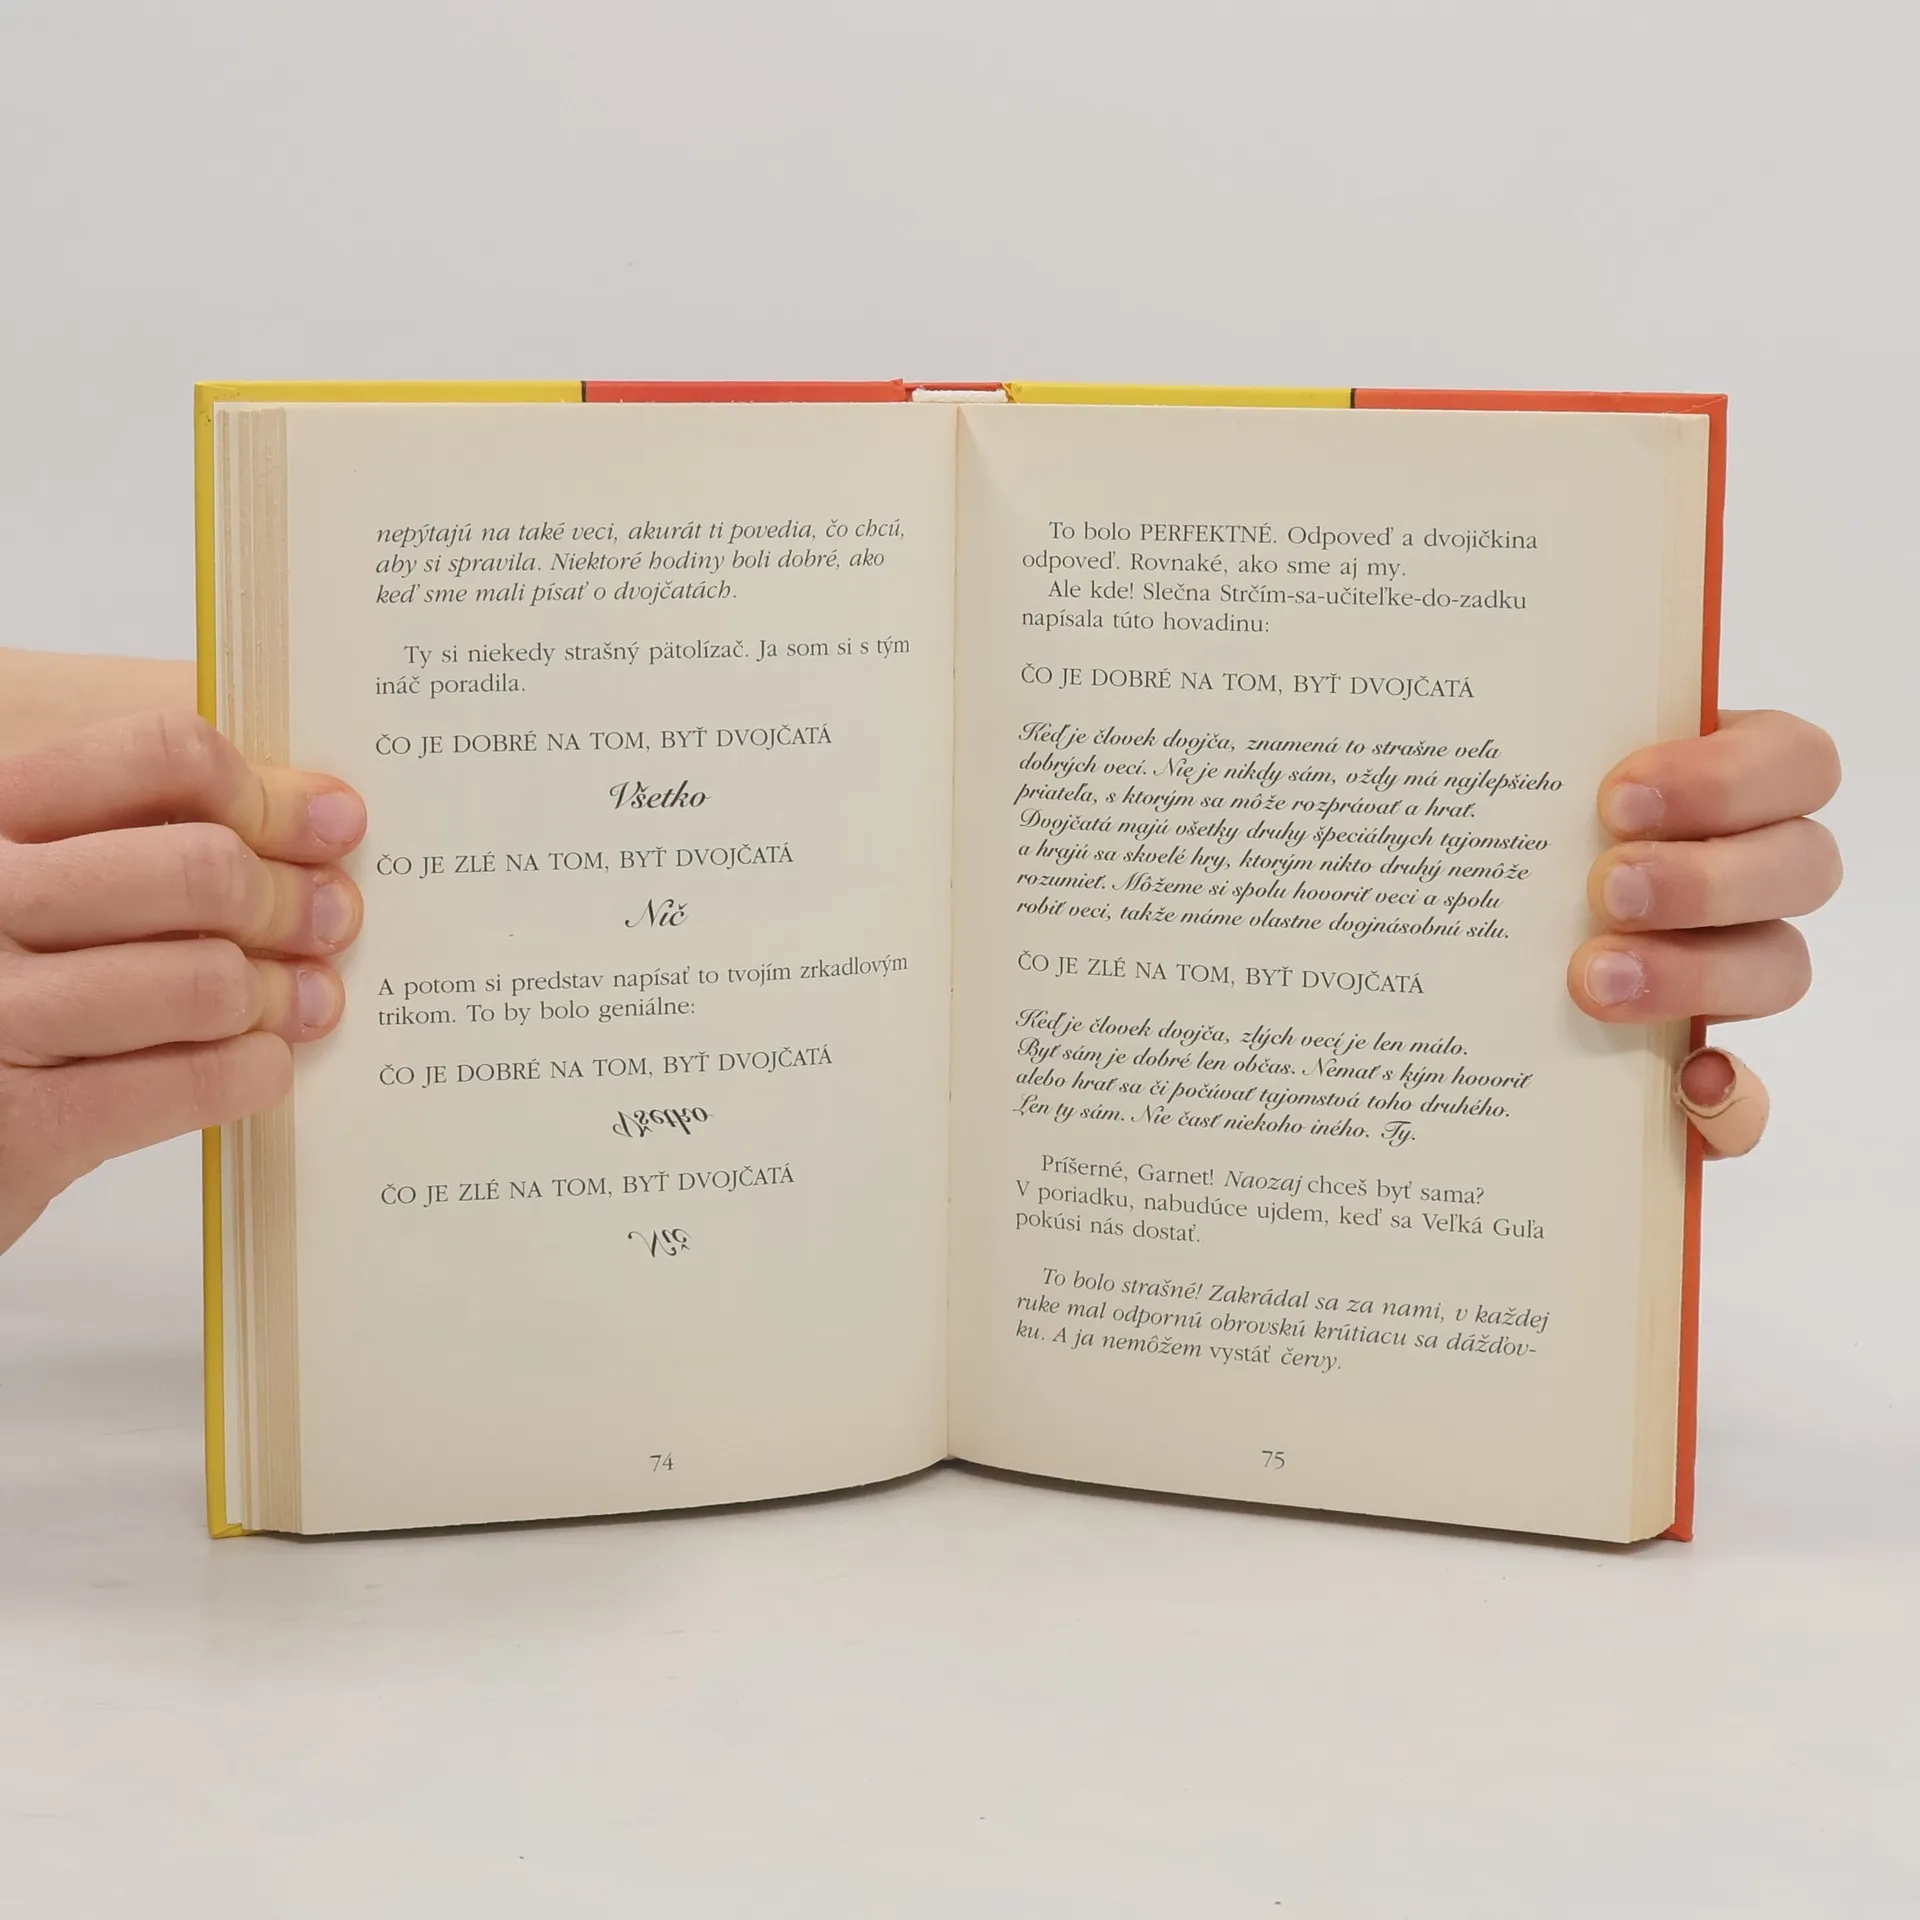 nepýtajú na také veci, akurát ti povedia, čo chcú,
aby si spravila. Niektoré hodiny boli dobré, ako
keď sme mali písať o dvojčatách.
Ty si niekedy strašný pätolízač. Ja som si s tým
ináč poradila.
ČO JE DOBRÉ NA TOM, BYŤ DVOJČATÁ
Všetko
ČO JE ZLÉ NA TOM, BYŤ DVOJČATÁ
Nič
A potom si predstav napísať to tvojím zrkadlovým
trikom. To by bolo geniálne:
ČO JE DOBRÉ NA TOM, BYŤ DVOJČATÁ
Všetko
ČO JE ZLÉ NA TOM, BYŤ DVOJČATÁ
Nič
74
To bolo PERFEKTNÉ. Odpoveď a dvojičkina
odpoveď. Rovnaké, ako sme aj my.
Ale kde! Slečna Strčím-sa-učiteľke-do-zadku
napísala túto hovadinu:
ČO JE DOBRÉ NA TOM, BYŤ DVOJČATÁ
Keď je človek dvojča, znamená to strašne veľa
dobrých vecí. Nie je nikdy sám, vždy má najlepšieho
priateľa, s ktorým sa môže rozprávať a hrať.
Dvojčatá majú všetky druhy špeciálnych tajomstiev
a hrajú sa skvelé hry, ktorým nikto druhý nemôže
rozumieť. Môžeme si spolu hovoriť veci a spolu
robiť veci, takže máme vlastne dvojnásobnú silu.
ČO JE ZLÉ NA TOM, BYŤ DVOJČATÁ
Keď je človek dvojča, zlých vecí je len málo.
Byť sám je dobré len občas. Nemať s kým hovoriť
alebo hrať sa či počúvať tajomstvá toho druhého.
Len ty sám. Nie časť niekoho iného. Ty.
Príšerné, Garnet! Naozaj chceš byť sama?
V poriadku, nabudúce ujdem, keď sa Veľká Guľa
pokúsi nás dostať.
To bolo strašné! Zakrádal sa za nami, v každej
ruke mal odpornú obrovskú krútiacu sa dážďov-
ku. A ja nemôžem vystáť červy.
75